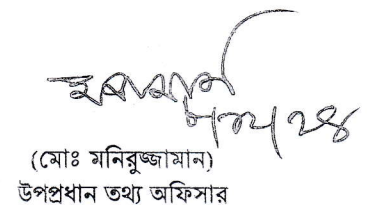 (মোঃ মনিরুজ্জামান)
উপপ্রধান তথ্য অফিসার